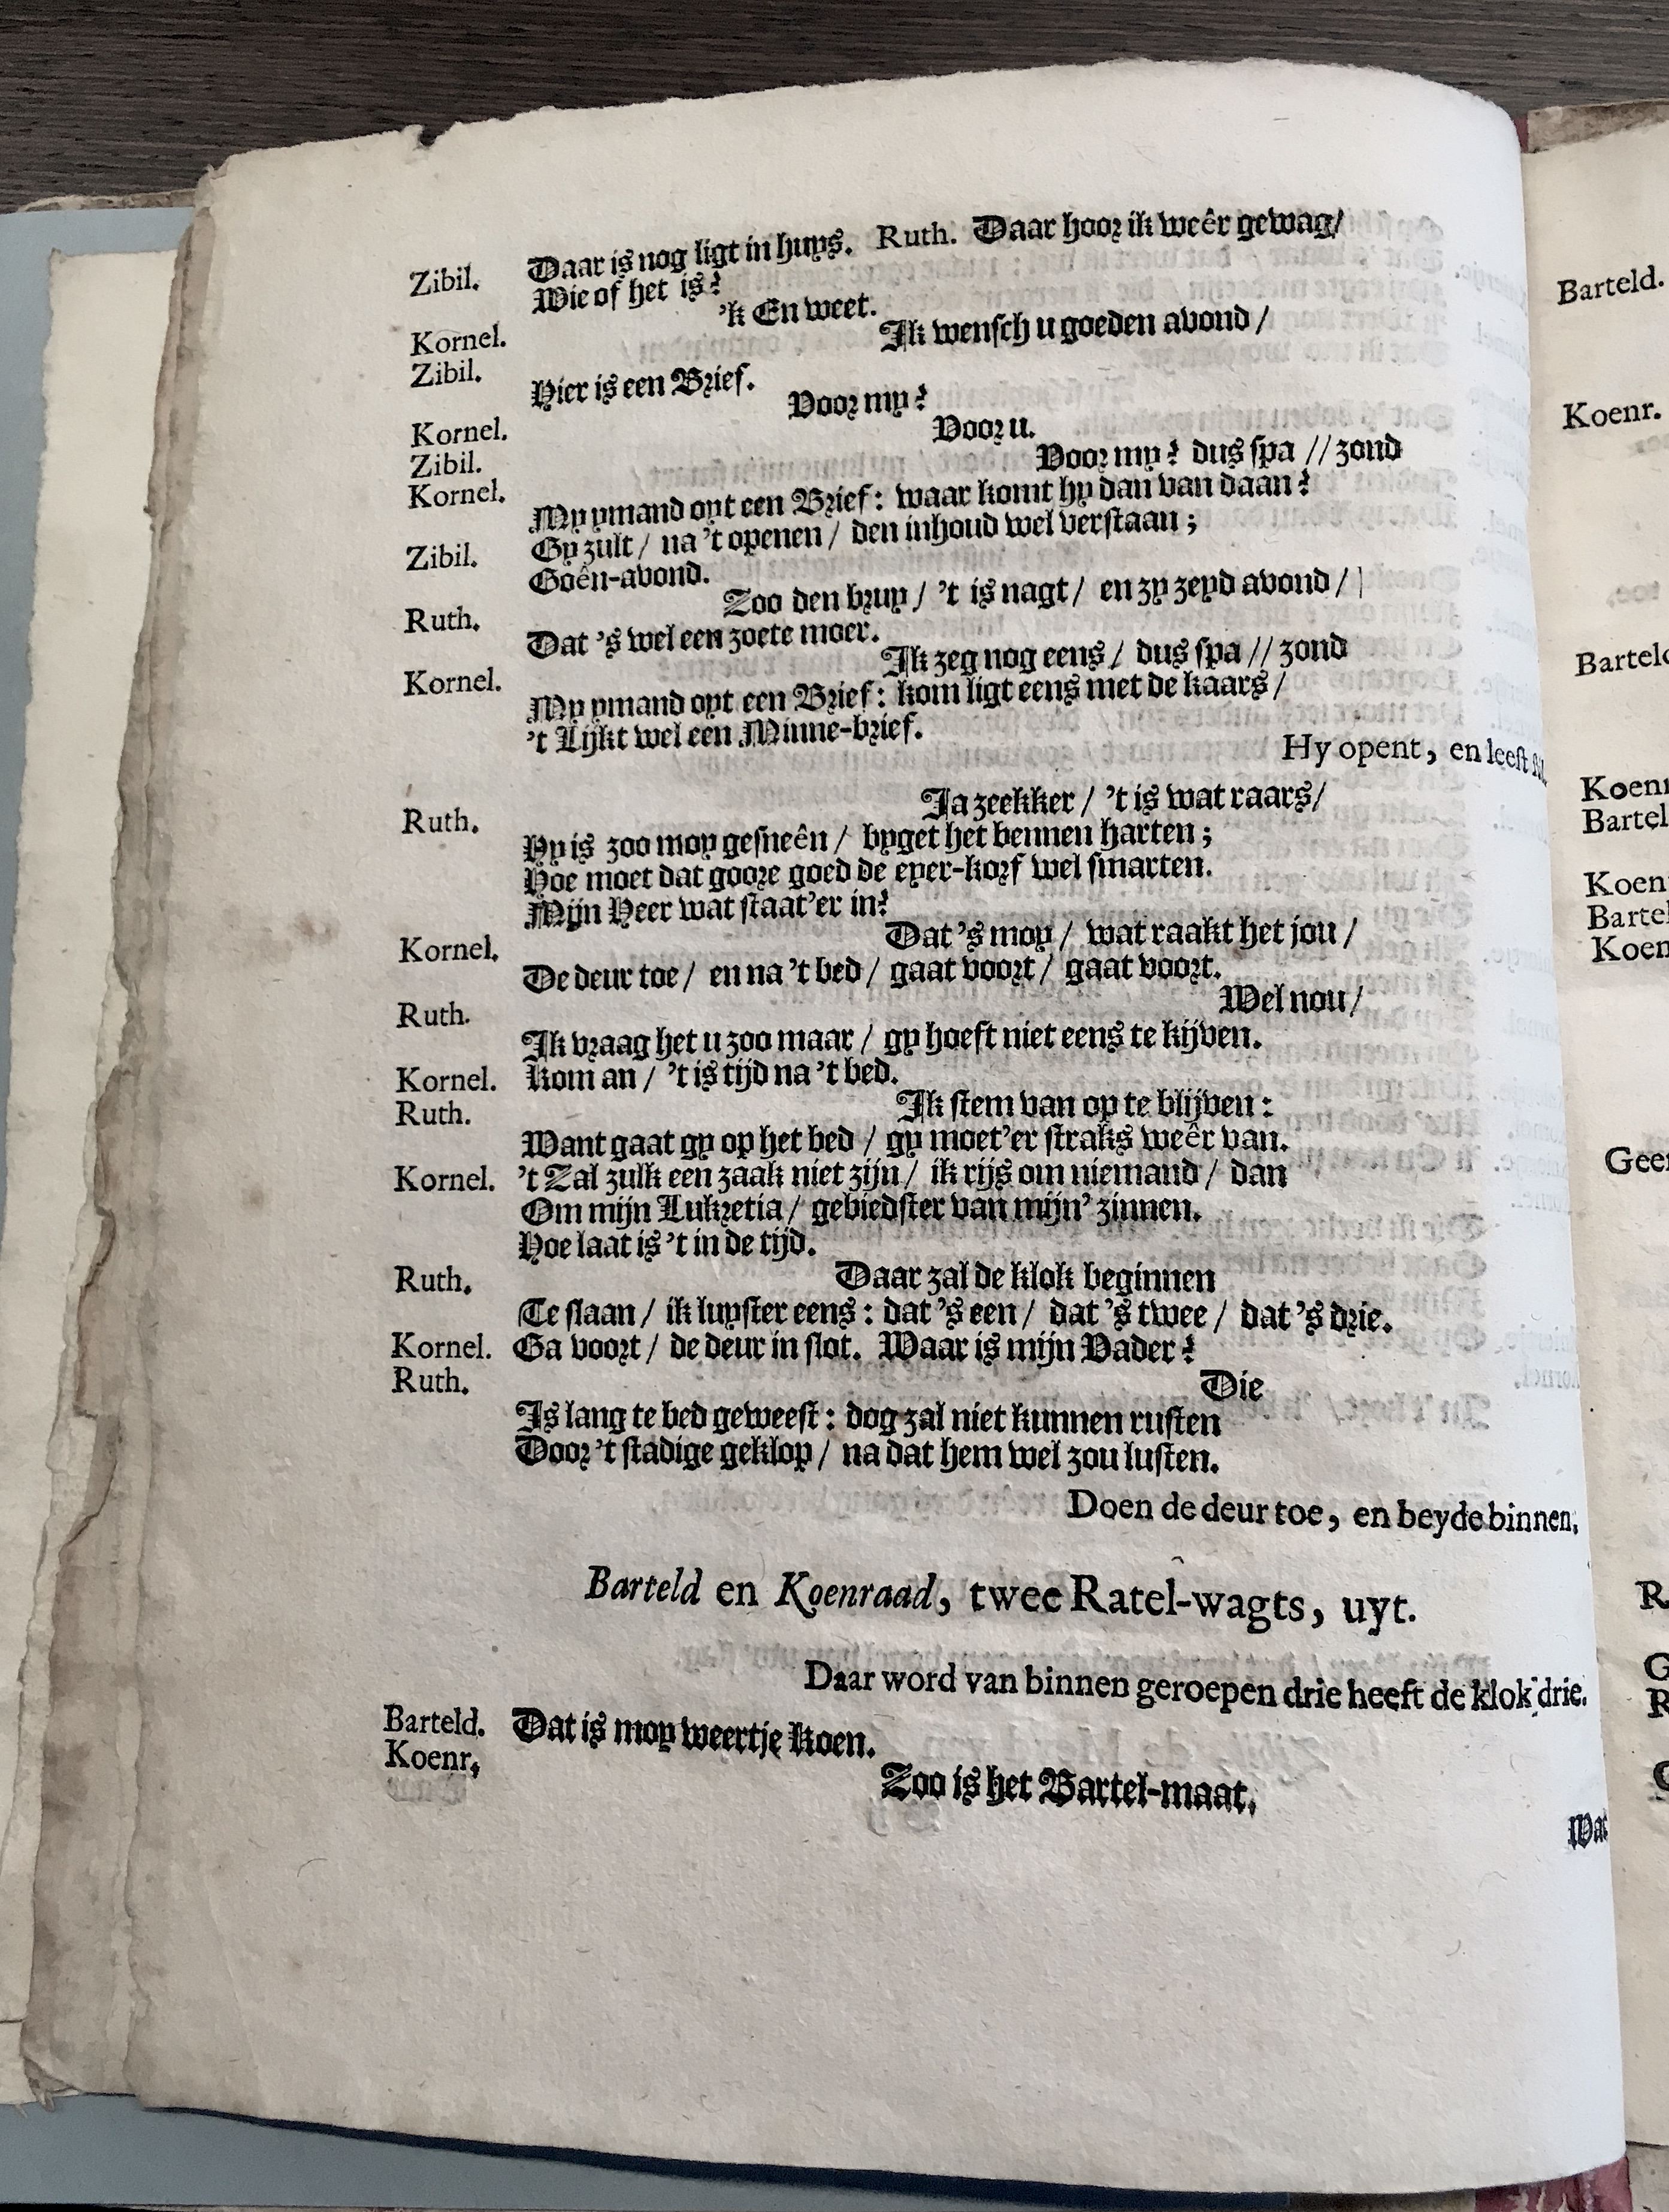 Zibil. Daar is nog ligt in huys. Ruth. Daar hoor ik weêr gewag/
Wie of het is?
Kornel. 'k En weet.
Zibil. Ik wensch u goeden avond /
Hier is een Brief.
Kornel. Voor my?
Zibil. Voor u.
Kornel. Voor my? dus spa // zond
My ymand oyt een Brief: waar komt hy dan van daan?
Zibil. Gy zult / na 't openen / den inhoud wel verstaan;
Goên-avond.
Ruth. Zoo den bruy / 't is nagt / en zy zeyd avond /
Dat 's wel een zoete moer.
Kornel. Ik zeg nog eens / dus spa // zond
My ymand oyt een Brief: kom ligt eens met de kaars /
't Lijkt wel een Minne-brief.
Hy opent, en leest
Ruth. Ja zeekker / 't is wat raars/
Hy is zoo moy gesneên / byget het bennen harten;
Hoe moet dat goore goed de eyer-korf wel smarten.
Mijn Heer wat staat'er in?
Kornel. Dat 's moy / wat raakt het jou /
De deur toe / en na 't bed / gaat voort / gaat voort.
Ruth. Wel nou /
Ik vraag het u zoo maar / gy hoeft niet eens te kijven.
Kornel. Kom an / 't is tijd na 't bed.
Ruth. Ik stem van op te blijven:
Want gaat gy op het bed / gy moet'er straks weêr van.
Kornel. 't Zal zulk een zaak niet zijn / ik rijs om niemand / dan
Om mijn Lukretia / gebiedster van mijn' zinnen.
Hoe laat is 't in de tijd.
Ruth. Daar zal de klok beginnen
Te slaan / ik luyster eens: dat 's een / dat 's twee / dat 's drie.
Kornel. Ga voort / de deur in slot. Waar is mijn Vader?
Ruth. Die
Is lang te bed geweest: dog zal niet kunnen rusten
Door 't stadige geklop / na dat hem wel zou lusten.
Doen de deur toe, en beyde binnen.
Barteld en Koenraad, twee Ratel-wagts, uyt.
Daar word van binnen geroepen drie heeft de klok drie.
Barteld. Dat is moy weertje Koen.
Koenr. Zoo is het Bartel-maat.
Wat
Barteld.
Koenr.
Barteld
Koenr
Bartel
Koen
Bartel
Koen
Geer
R
G
R
G